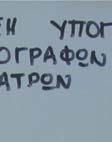 ΣΗ ΥΠΟΓ
ΟΓΡΑΦΩΝ
ΑΤΡΩΝ